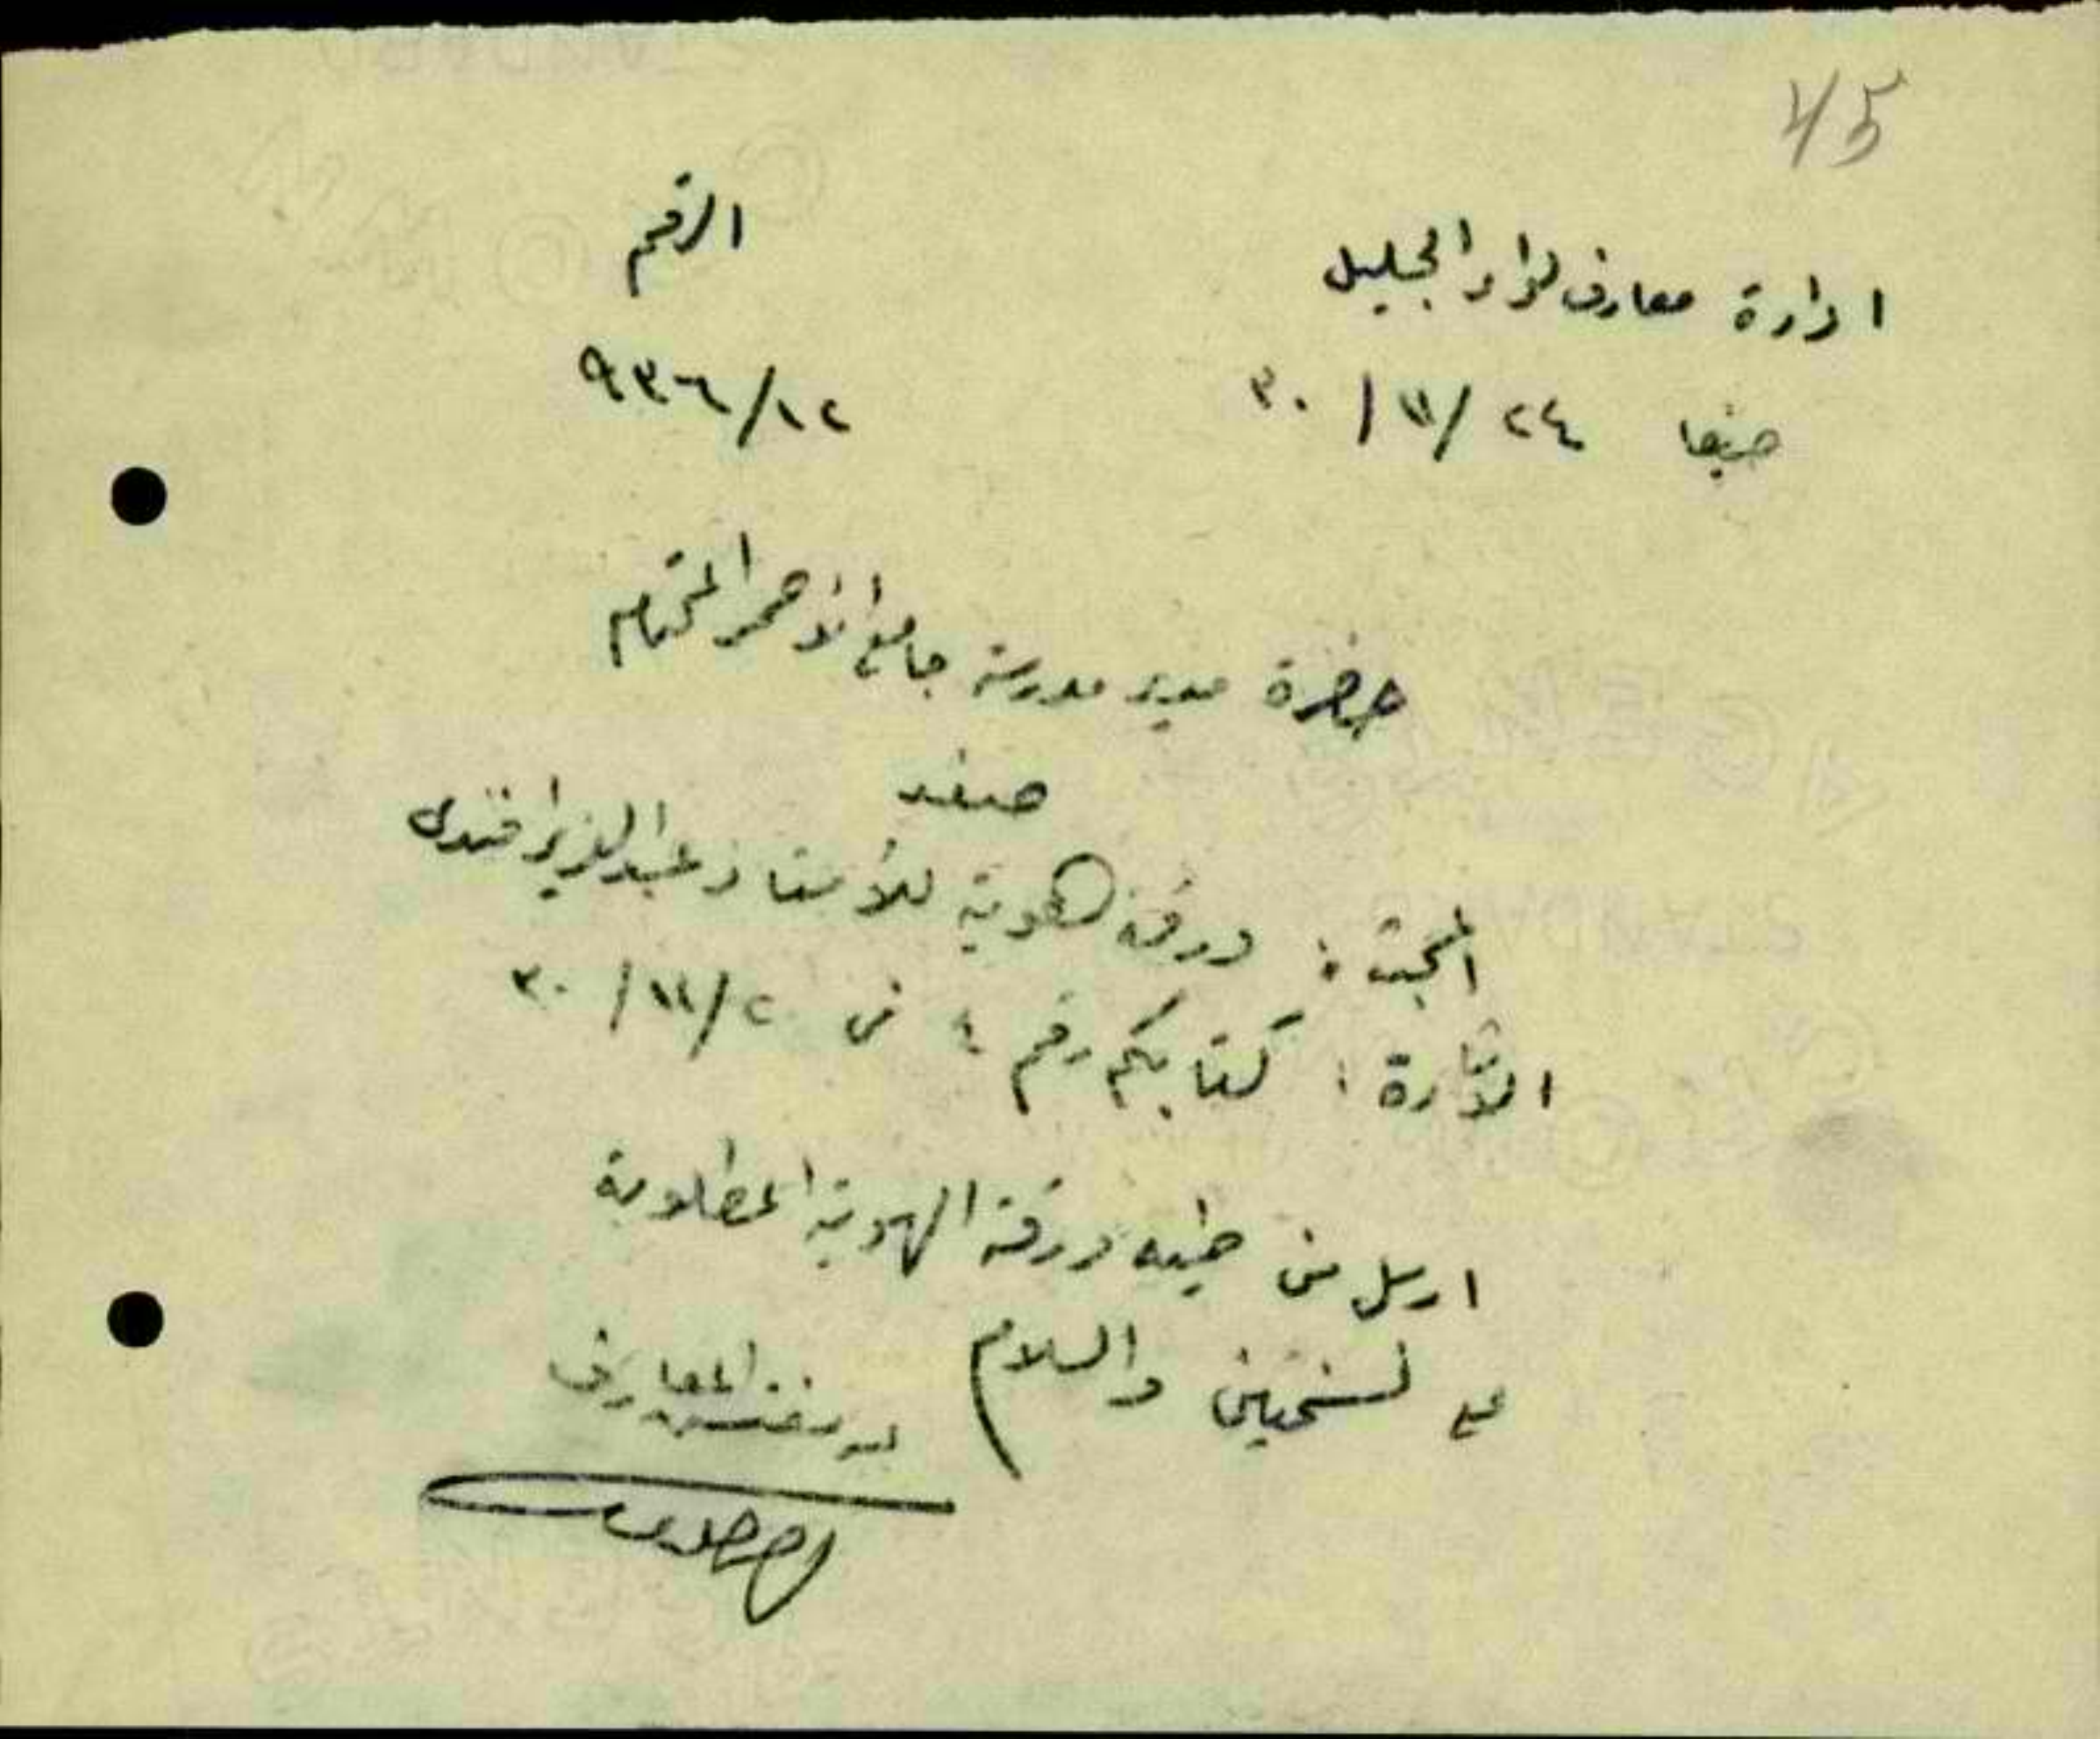 45
ادارة معارف لواء الجليل
الرقم
حيفا ٢٤/١١/٣٠
٩٣٦/١٢
حضرة مدير مدرسة جامع الاحمر المحترم
صفد
المبحث: ورقة هوية للأستاذ عبد العزيز افندي
الاشارة: كتابكم رقم ٤ في ٢٠/١١/٣٠
ارسل من طيه ورقة الهوية المطلوبة
على نسختين والسلام
مفتش المعارف